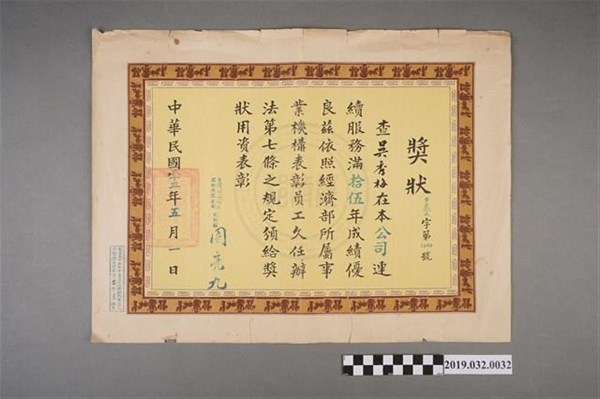 獎狀
字第
號
查吳秀梅在本公司連
續服務滿拾伍年成績優
良茲依照經濟部所屬事
業機構表彰員工久任辦
法第七條之規定頒給獎
狀用資表彰
周
九
中華民國
年五月一日
2019.032.0032